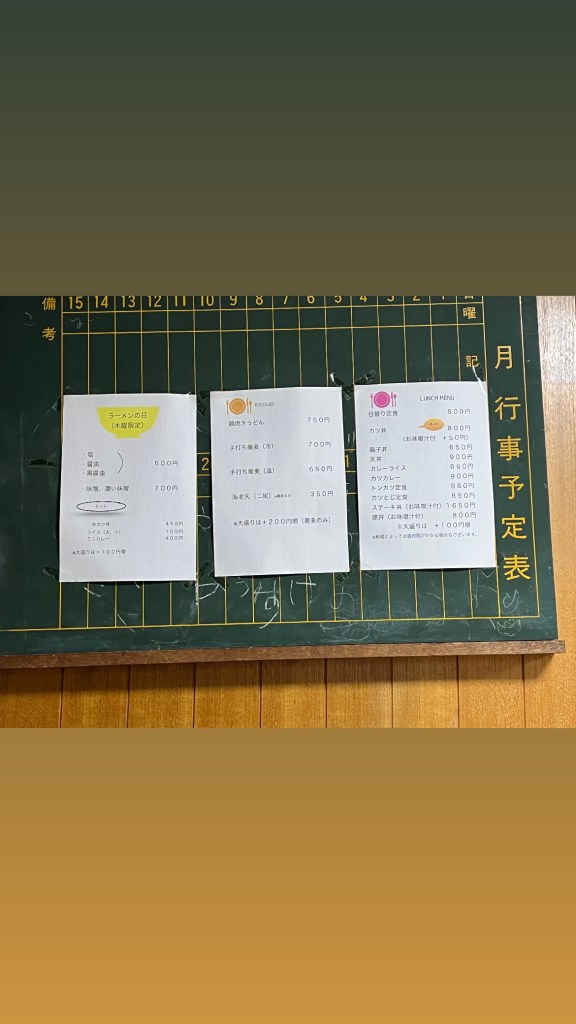 備考
15 14 13 12 11 10 9 8 7 6 5 4 3 2 1 日
曜
記
月行事予定表
ラーメンの日
(木曜限定)
・塩
・醤油 600円
・黒醤油
・味噌、濃い味噌 700円
セット
半カツ丼 450円
ライス(大、小) 100円
ミニカレー 400円
*大盛りは+100円増
鍋焼きうどん 750円
手打ち蕎麦(冷) 700円
手打ち蕎麦(温) 650円
海老天(二尾) 350円
*大盛りは+200円増(蕎麦のみ)
LUNCH MENU
日替り定食 800円
カツ丼 800円
(お味噌汁付 +50円)
親子丼 650円
天丼 900円
カレーライス 660円
カツカレー 900円
トンカツ定食 980円
カツとじ定食 850円
ステーキ丼(お味噌汁付)1650円
豚丼(お味噌汁付) 800円
*大盛りは +100円増
*料理によってお時間がかかる場合もございます。